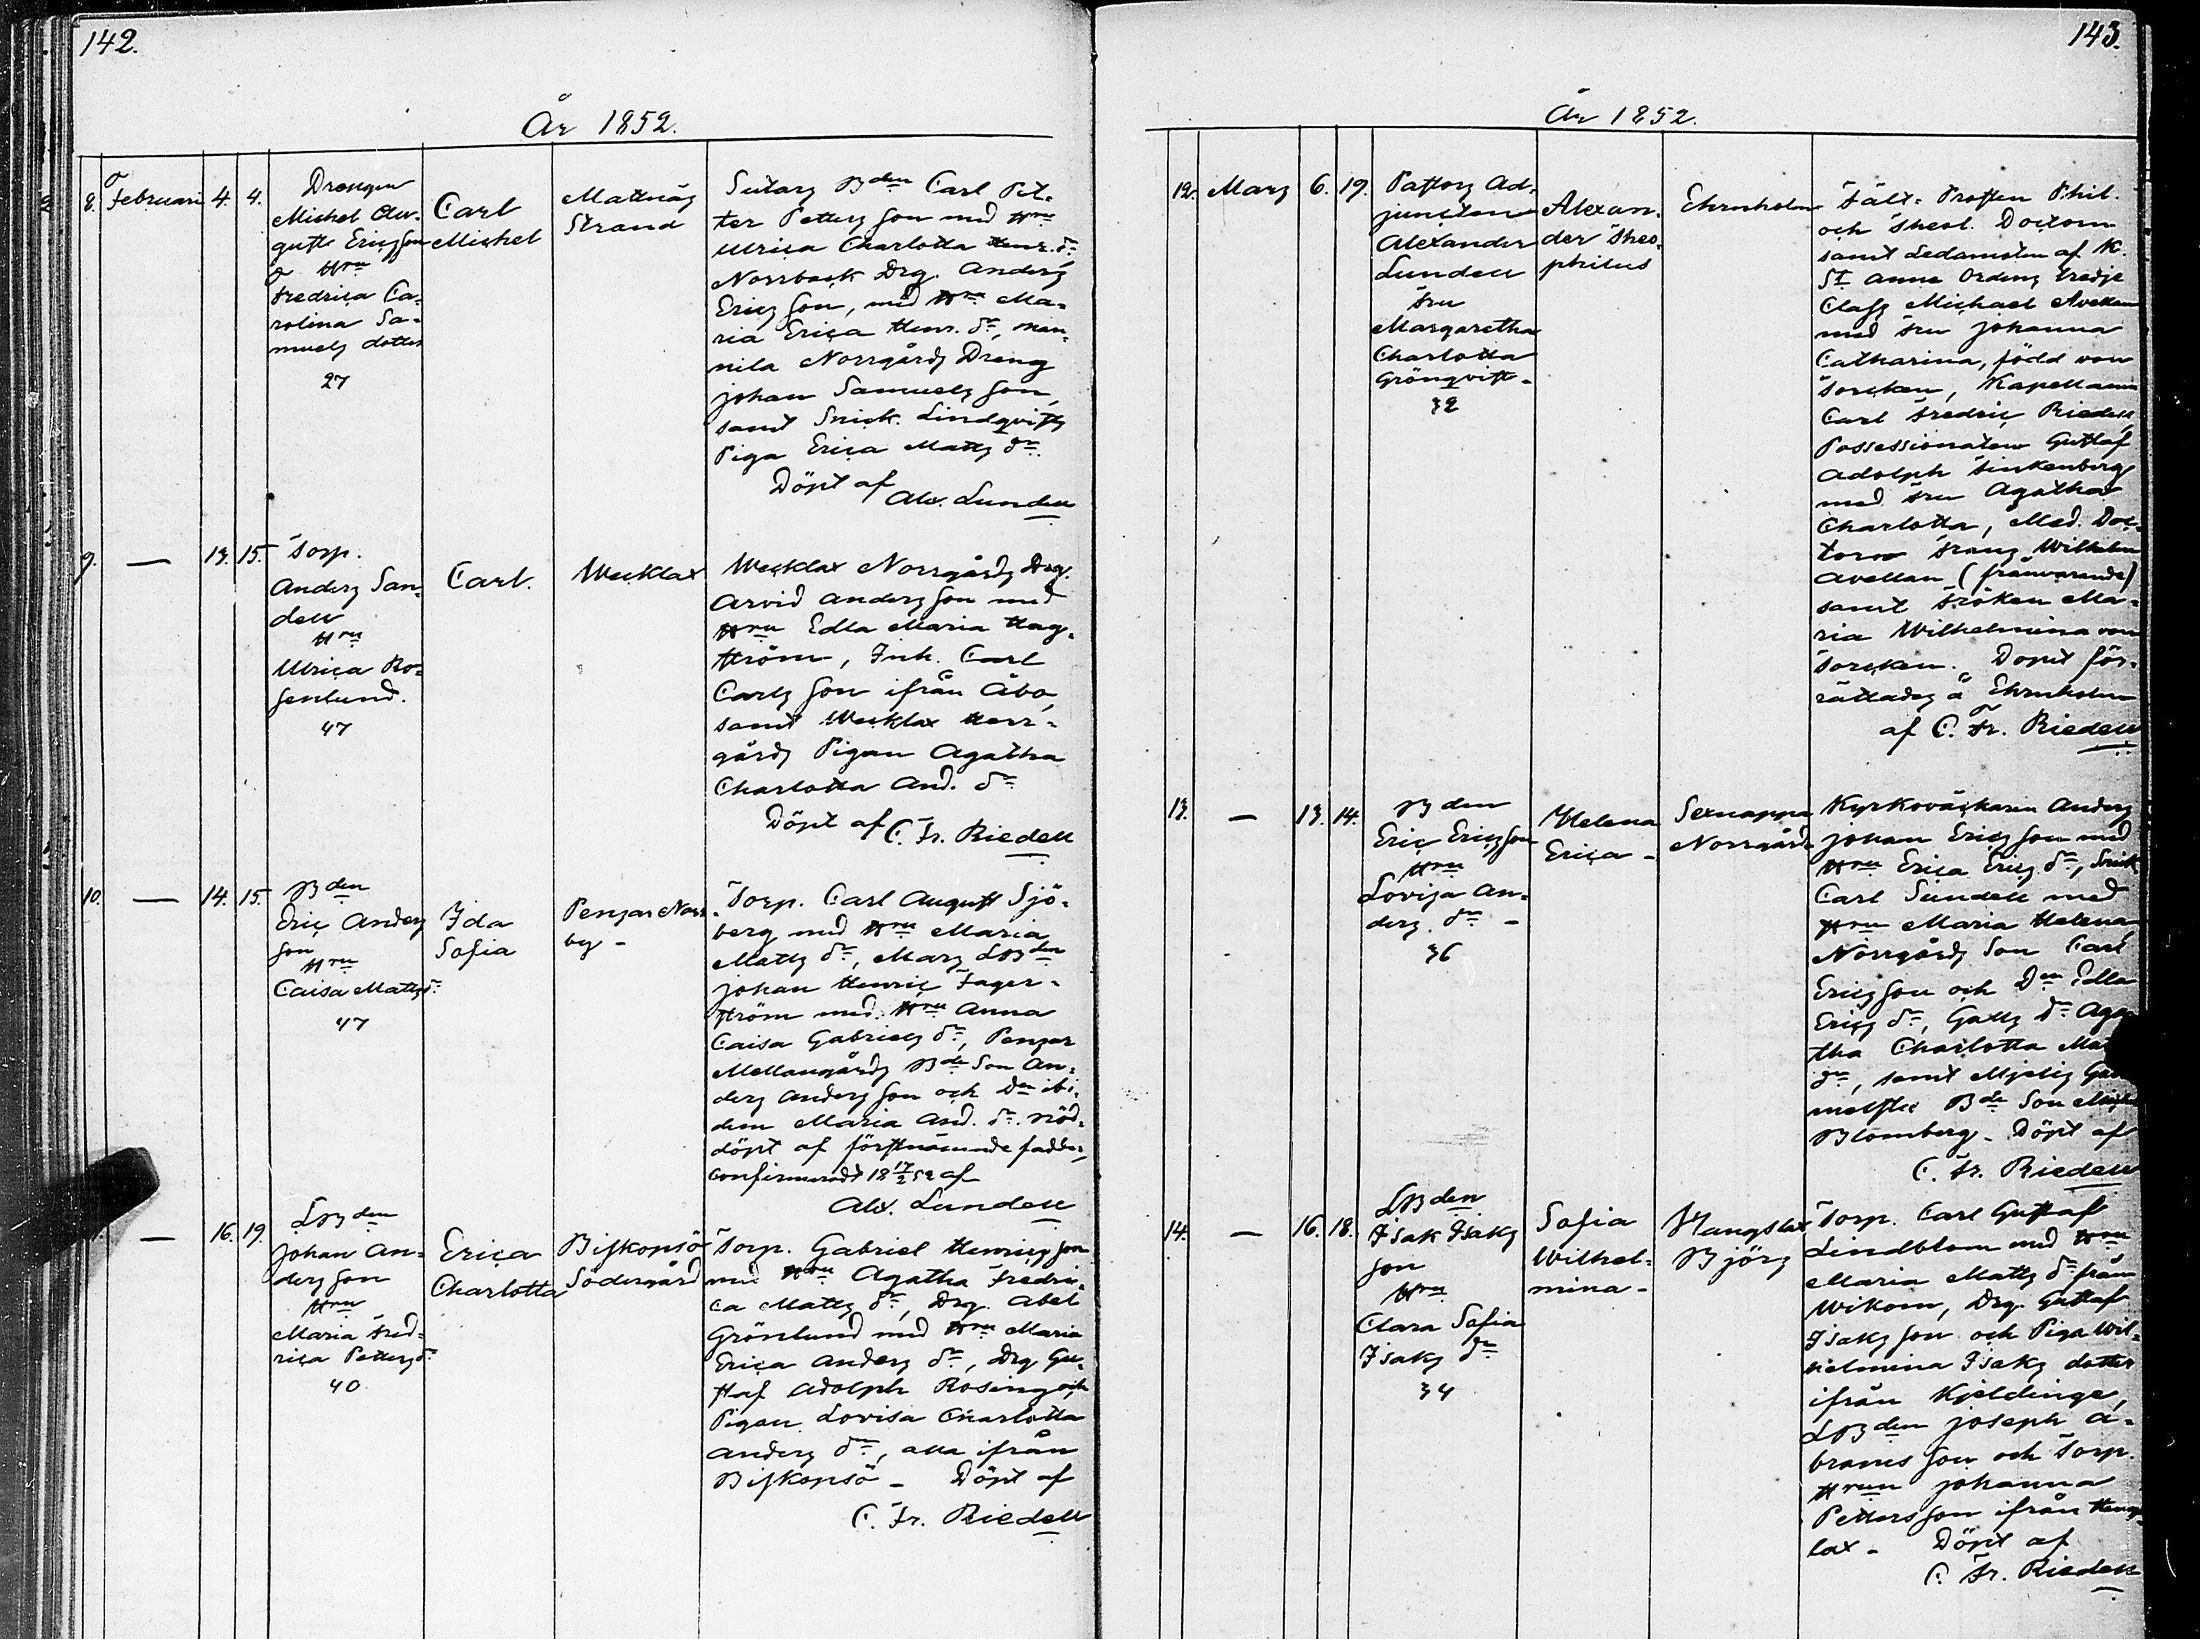 142.
År 1852.
8. Februari 4. 4.
Drengen
Michel Au-
gust Ericsson
o Hru
Fredrica Ca-
rolina Sa-
muels dotter
27
Carl
Michel
Mattnäs
Strand
Sutars Bden Carl Pet-
ter Pettersson med Hru
Ulrica Charlotta Henr. dr
Norrback Drg. Anders
Ericsson, med Hru Ma-
ria Erica Henr. dr, Man-
nila Norrgårds Dreng
Johan Samuelsson,
samt Snick. Lindqvists
Piga Erica Matts dr.
Döpt af
Alx. Lundell
9. — 13. 15.
Torp.
Anders San-
dell
Hru
Ulrica Ro-
senlund.
47
Carl.
Wecklax
Wecklax Norrgårds Drg.
Arvid Andersson med
Hru Edla Maria Hag-
ström, Inh. Carl
Carlsson ifrån Åbo,
samt Wecklax Herr-
gårds Pigan Agatha
Charlotta And. dr
Döpt af
C. Fr. Riedell
10. — 14. 15.
Bden
Eric Anders
son
Hru
Caisa Matts dr.
47
Ida
Sofia
Pensar Norr-
by -
Torp. Carl August Sjö-
berg med Hru Maria
Matts dr, Mars LBden
Johan Henric Fager-
ström med Hru Anna
Caisa Gabriels dr, Pensar
Mellangårds Bde Son An-
ders Andersson och Dn ibi-
dem Maria And. dr. nöd-
döpt af förstnämnde fadder,
confirmeradt 18 17/2 52 af
Alx. Lundell
— 16. 19.
LBden
Johan An-
dersson
Hru
Maria Fred-
rica Petters dr.
40.
Erica
Charlotta
Biskopsö
Södergård
Torp. Gabriel Henricsson
med Hru Agatha Fredri-
ca Matts dr, Drg. Abel
Grönlund med Hru Maria
Erica Anders dr, Drg Gu-
staf Adolph Rosing och
Pigan Lovisa Charlotta
Anders dr, alla ifrån
Biskopsö - Döpt af
C. Fr. Riedell
143.
År 1852.
12. Mars 6. 19.
Pastors Ad-
juncten
Alexander
Lundell
Fru
Margaretha
Charlotta
Grönqvist -
32
Alexan-
der Theo-
philus
Ehrnholm
Fält-Prosten Phil.
och Theol. Doctorn
samt Ledamoten af K.
St Anne Ordens tredje
Class Michael Avellan
med Fru Johanna
Catharina, född von
Torcken, Kapellanen
Carl Fredric Riedell,
Possessionaten Gustaf
Adolph Finkenberg
med Fru Agatha
Charlotta, Med. Doc-
toren Frans Wilhelm
Avellan (frånvarande)
samt Fröken Ma-
ria Wilhelmina von
Torcken. Dopet för-
rättades å Ehrnholm
af C. Fr. Riedell
13. — 13. 14.
Bden
Eric Ericsson
Hru
Lovisa An-
ders. dr -
36
Helena
Erica -
Sexnappa
Norrgård -
Kyrkoväcktaren Anders
Johan Ericsson med
Hru Erica Erics dr, Snick
Carl Sundell med
Hru Maria Helena,
Norrgårds Son Carl
Ericsson och Dn Edla
Erics dr, Galts Dr Aga-
tha Charlotta
dr, samt Mjelis
Bde Son
Blomberg - Döpt af
C. Fr. Riedell
14. — 16. 18.
LBden
Isak Isaks
son
Hru
Clara Sofia
Isaks dr
34
Sofia
Wilhel-
mina -
Hangslax
Björs
Torp. Carl Gustaf
Lindblom med Hru
Maria Matts dr från
Wikom, Drg. Gustaf
Isaksson och Piga Wil-
helmina Isaks dotter
ifrån Kjeldinge,
LBden Joseph A-
bramsson och Torp.
Hrun Johanna
Pettersson ifrån Hangs-
lax - Döpt af
C. Fr. Riedell